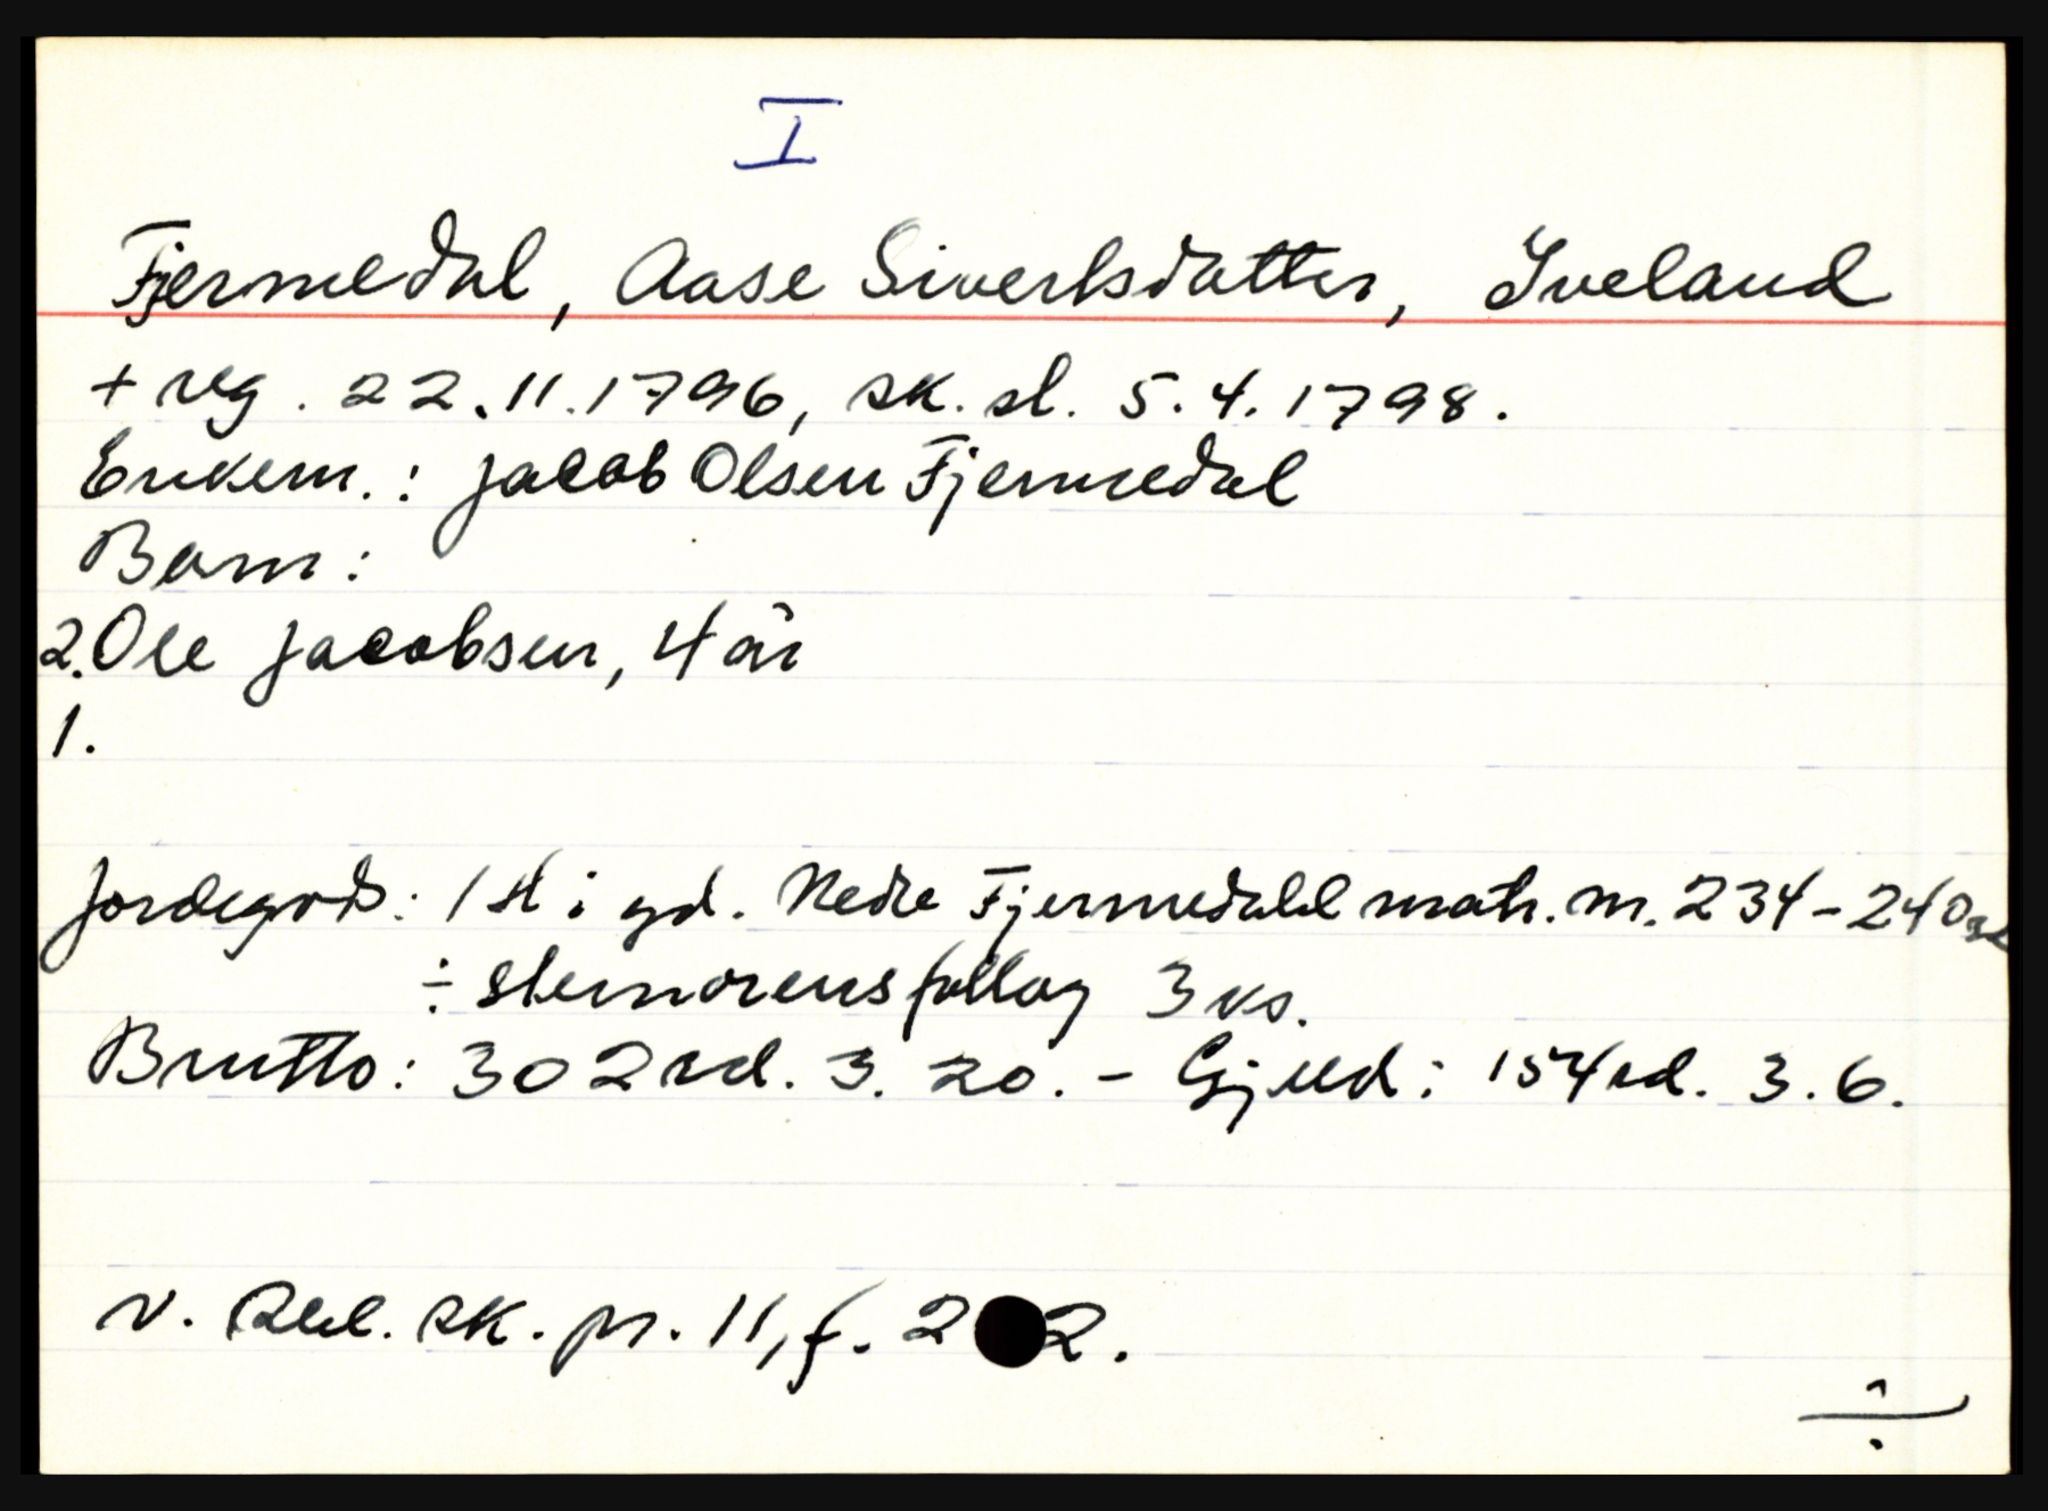 I
Fjermedal, Aase Sivertsdatter, Iveland
+ reg. 22.11.1796, sk. sl. 5.4.1798.
Enkem.: Jacob Olsen Fjermedal
Barn:
2. Ole Jacobsen, 4 år
1.
Jordegods: 1 H i gd. Nedre Fjermedahl matr. nr. 234 - 240 rd
÷ stervorens follag 3 ks.
Brutto: 302 rd. 3. 20. - Gjeld: 154 rd. 3. 6.
v. Rbl. sk. pr. 11, f. 2 2.
÷